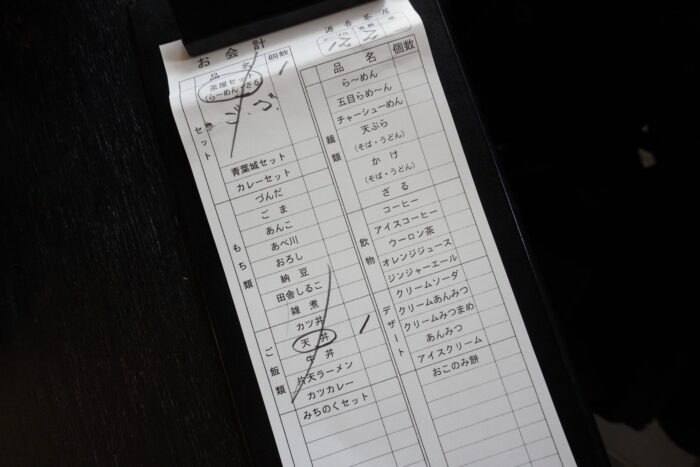 お会計
品名 個数
セット
茶屋セット
(ら〜めん・ざる) 1
ご、ず
青葉城セット
カレーセット
もち類
づんだ
ごま
あんこ
あべ川
おろし
納豆
田舎しるこ
雑煮
ご飯類
カツ丼
天丼 1
牛丼
片天ラーメン
カツカレー
みちのくセット
品名 個数
麺類
ら〜めん
五目らめ〜ん
チャーシューめん
天ぷら
(そば・うどん)
かけ
(そば・うどん)
ざる
飲物
コーヒー
アイスコーヒー
ウーロン茶
オレンジジュース
ジンジャーエール
デザート
クリームソーダ
クリームあんみつ
クリームみつまめ
あんみつ
アイスクリーム
おこのみ餅